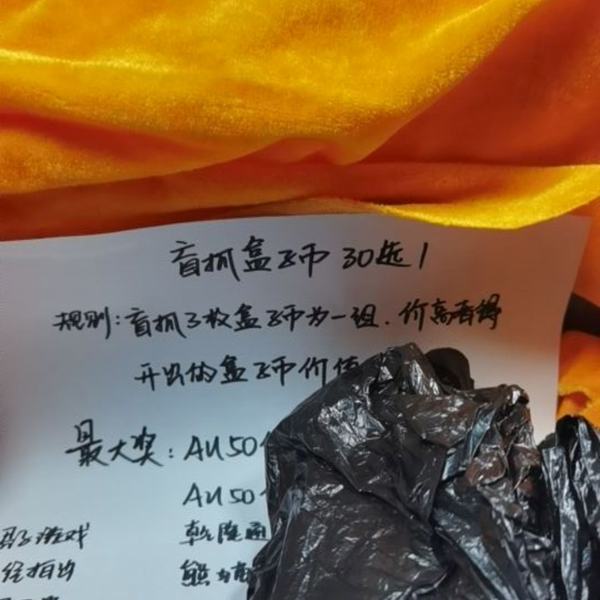 盲抓盒子币 30选1
规则:盲抓3枚盒子币为一组.价高者得
开出的盒子币价值
最大奖:AU50
AU50
游戏 乾隆通
拍出